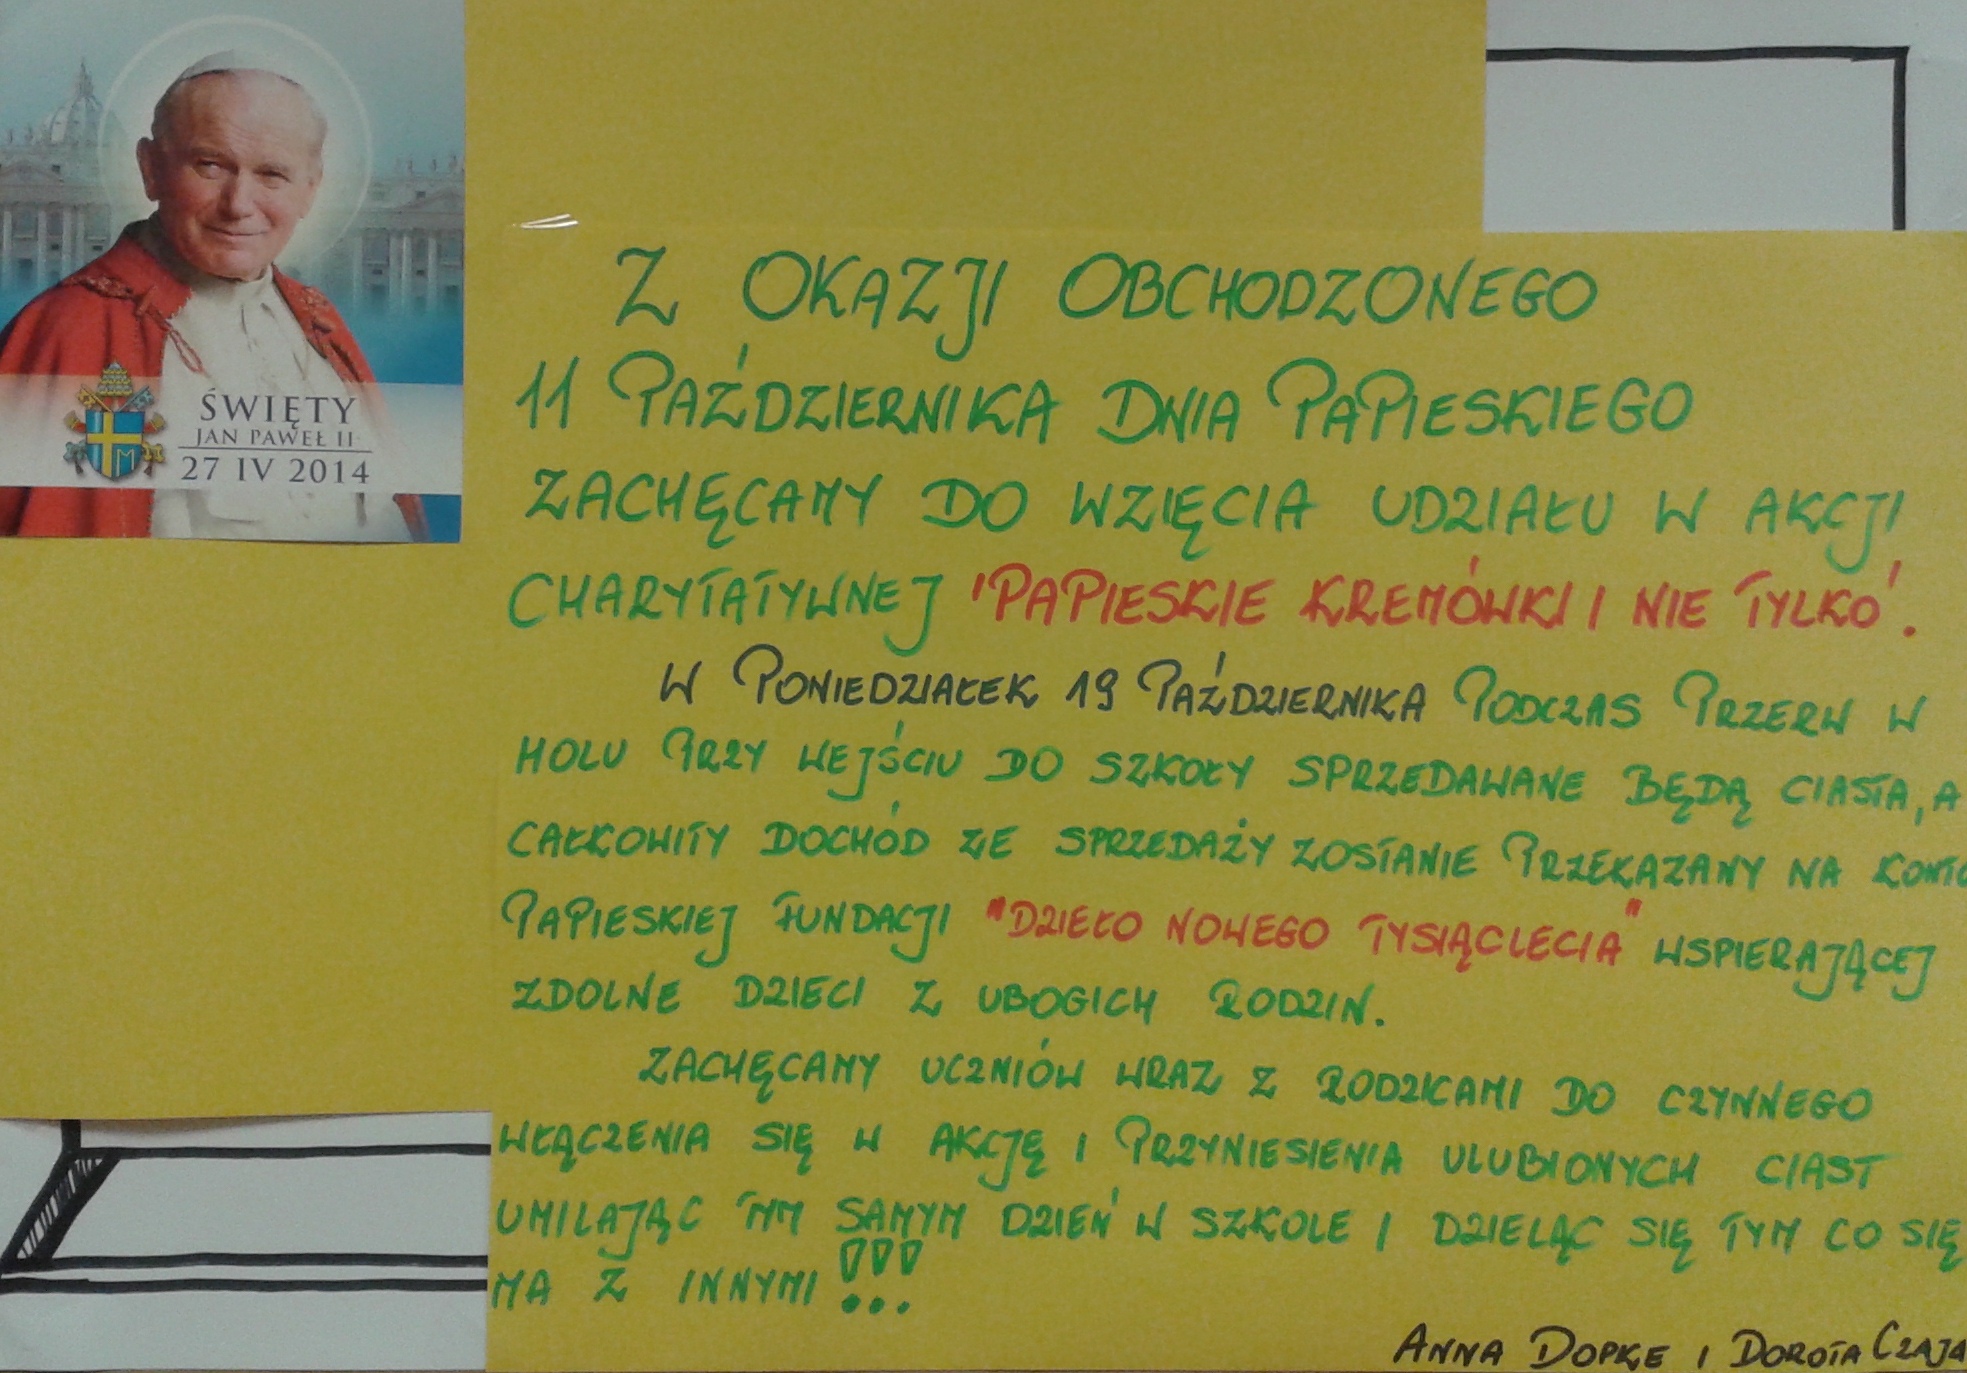 ŚWIĘTY
JAN PAWEŁ II
27 IV 2014
Z OKAZJI OBCHODZONEGO
11 PAŹDZIERNIKA DNIA PAPIESKIEGO
ZACHĘCAMY DO WZIĘCIA UDZIAŁU W AKCJI
CHARYTATYWNEJ 'PAPIESKIE KREMÓWKI I NIE TYLKO'.
W PONIEDZIAŁEK 19 PAŹDZIERNIKA PODCZAS PRZERW W
HOLU PRZY WEJŚCIU DO SZKOŁY SPRZEDAWANE BĘDĄ CIASTA, A
CAŁKOWITY DOCHÓD ZE SPRZEDAŻY ZOSTANIE PRZEKAZANY NA KONTO
PAPIESKIEJ FUNDACJI "DZIEŁO NOWEGO TYSIĄCLECIA" WSPIERAJĄCEJ
ZDOLNE DZIECI Z UBOGICH RODZIN.
ZACHĘCAMY UCZNIÓW WRAZ Z RODZICAMI DO CZYNNEGO
WŁĄCZENIA SIĘ W AKCJĘ I PRZYNIESIENIA ULUBIONYCH CIAST
UMILAJĄC TYM SAMYM DZIEŃ W SZKOLE I DZIELĄC SIĘ TYM CO SIĘ
MA Z INNYMI!!!
ANNA DOPKE I DOROTA CZAJA